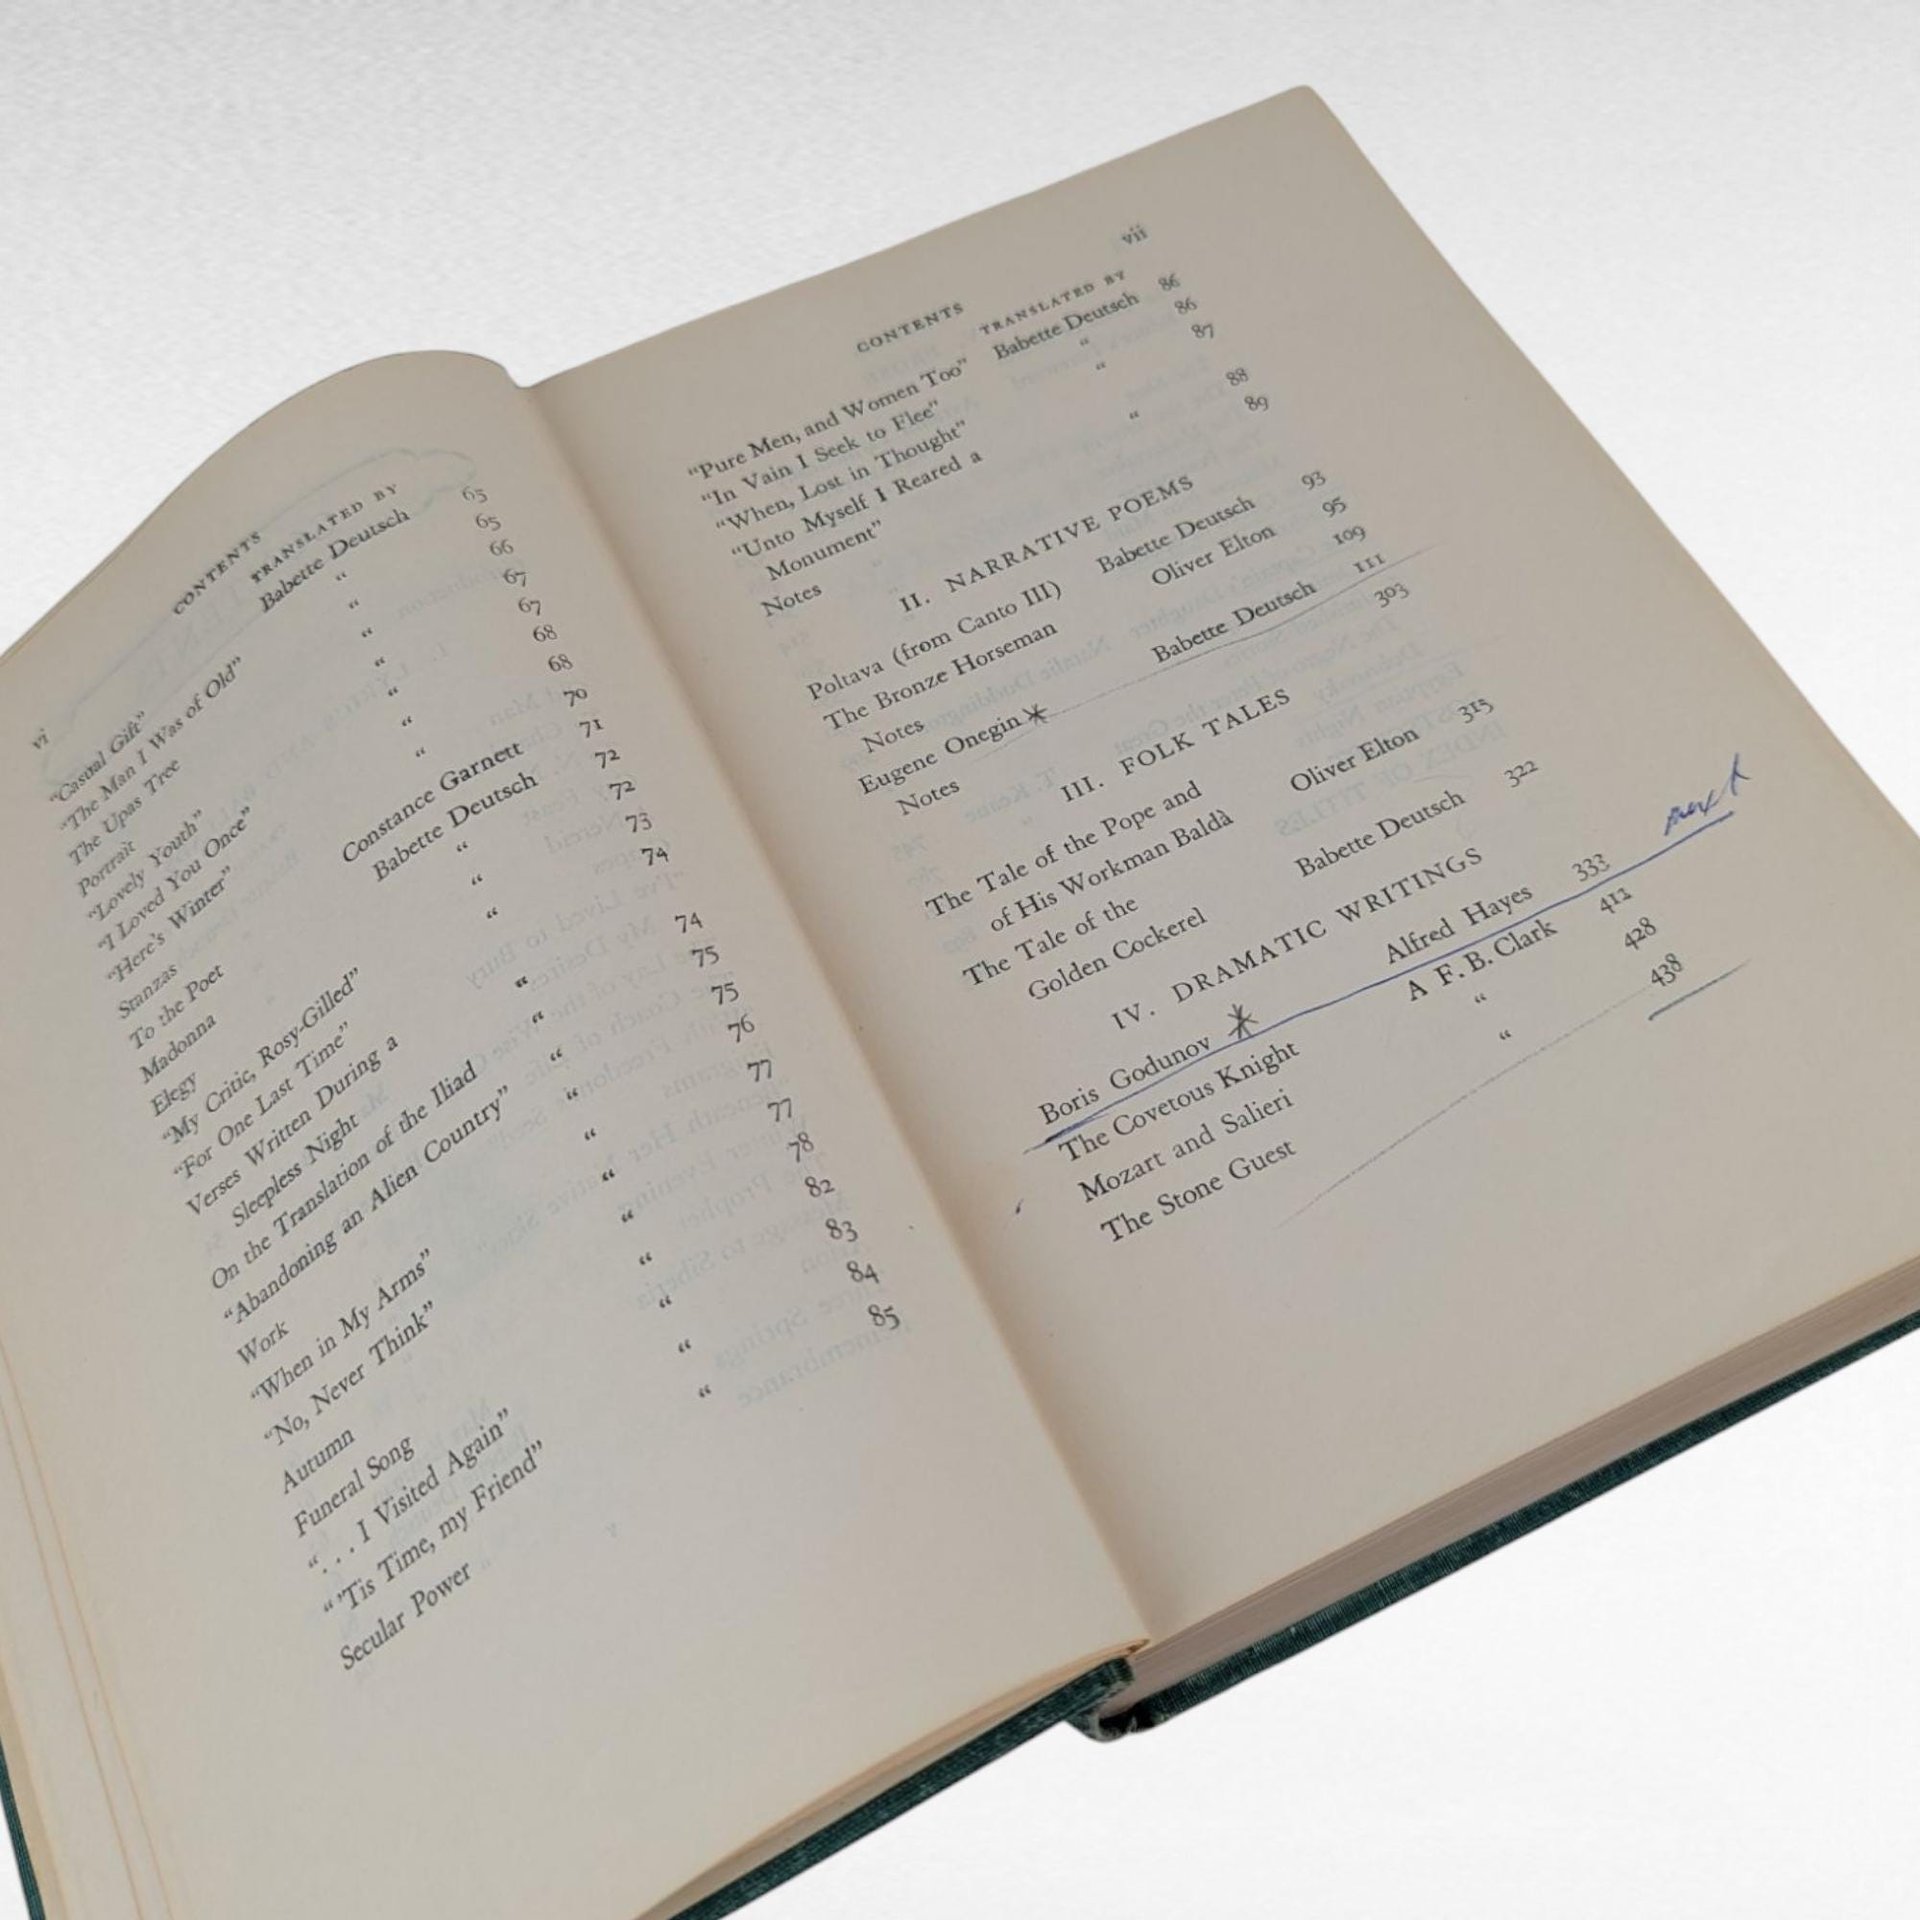 vi CONTENTS
TRANSLATED BY
“Casual Gift” Babette Deutsch 65
“The Man I Was of Old” “ 65
The Upas Tree “ 66
Portrait “ 67
“Lovely Youth” “ 67
“I Loved You Once” “ 68
“Here's Winter” “ 68
Stanzas “ 70
To the Poet Constance Garnett 71
Madonna Babette Deutsch 72
Elegy “ 72
“My Critic, Rosy-Gilled” “ 73
“For One Last Time” “ 74
Verses Written During a
Sleepless Night “ 74
On the Translation of the Iliad “ 75
“Abandoning an Alien Country” “ 75
Work “ 76
“When in My Arms” “ 77
“No, Never Think” “ 77
Autumn “ 78
Funeral Song “ 82
“. . . I Visited Again” “ 83
“ 'Tis Time, my Friend” “ 84
Secular Power “ 85
CONTENTS vii
TRANSLATED BY
“Pure Men, and Women Too” Babette Deutsch 86
“In Vain I Seek to Flee” “ 86
“When, Lost in Thought” “ 87
“Unto Myself I Reared a
Monument” “ 88
Notes 89
II. NARRATIVE POEMS
Poltava (from Canto III) Babette Deutsch 93
The Bronze Horseman Oliver Elton 95
Notes 109
Eugene Onegin Babette Deutsch 111
Notes 303
III. FOLK TALES
The Tale of the Pope and
of His Workman Baldà Oliver Elton 315
The Tale of the
Golden Cockerel Babette Deutsch 322
IV. DRAMATIC WRITINGS
Boris Godunov Alfred Hayes 333
The Covetous Knight A F. B. Clark 412
Mozart and Salieri “ 428
The Stone Guest “ 438